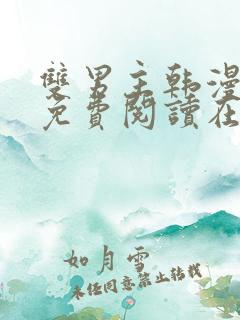 雙男主韩漫
免費閱讀在
如月雪
未经同意禁止转载